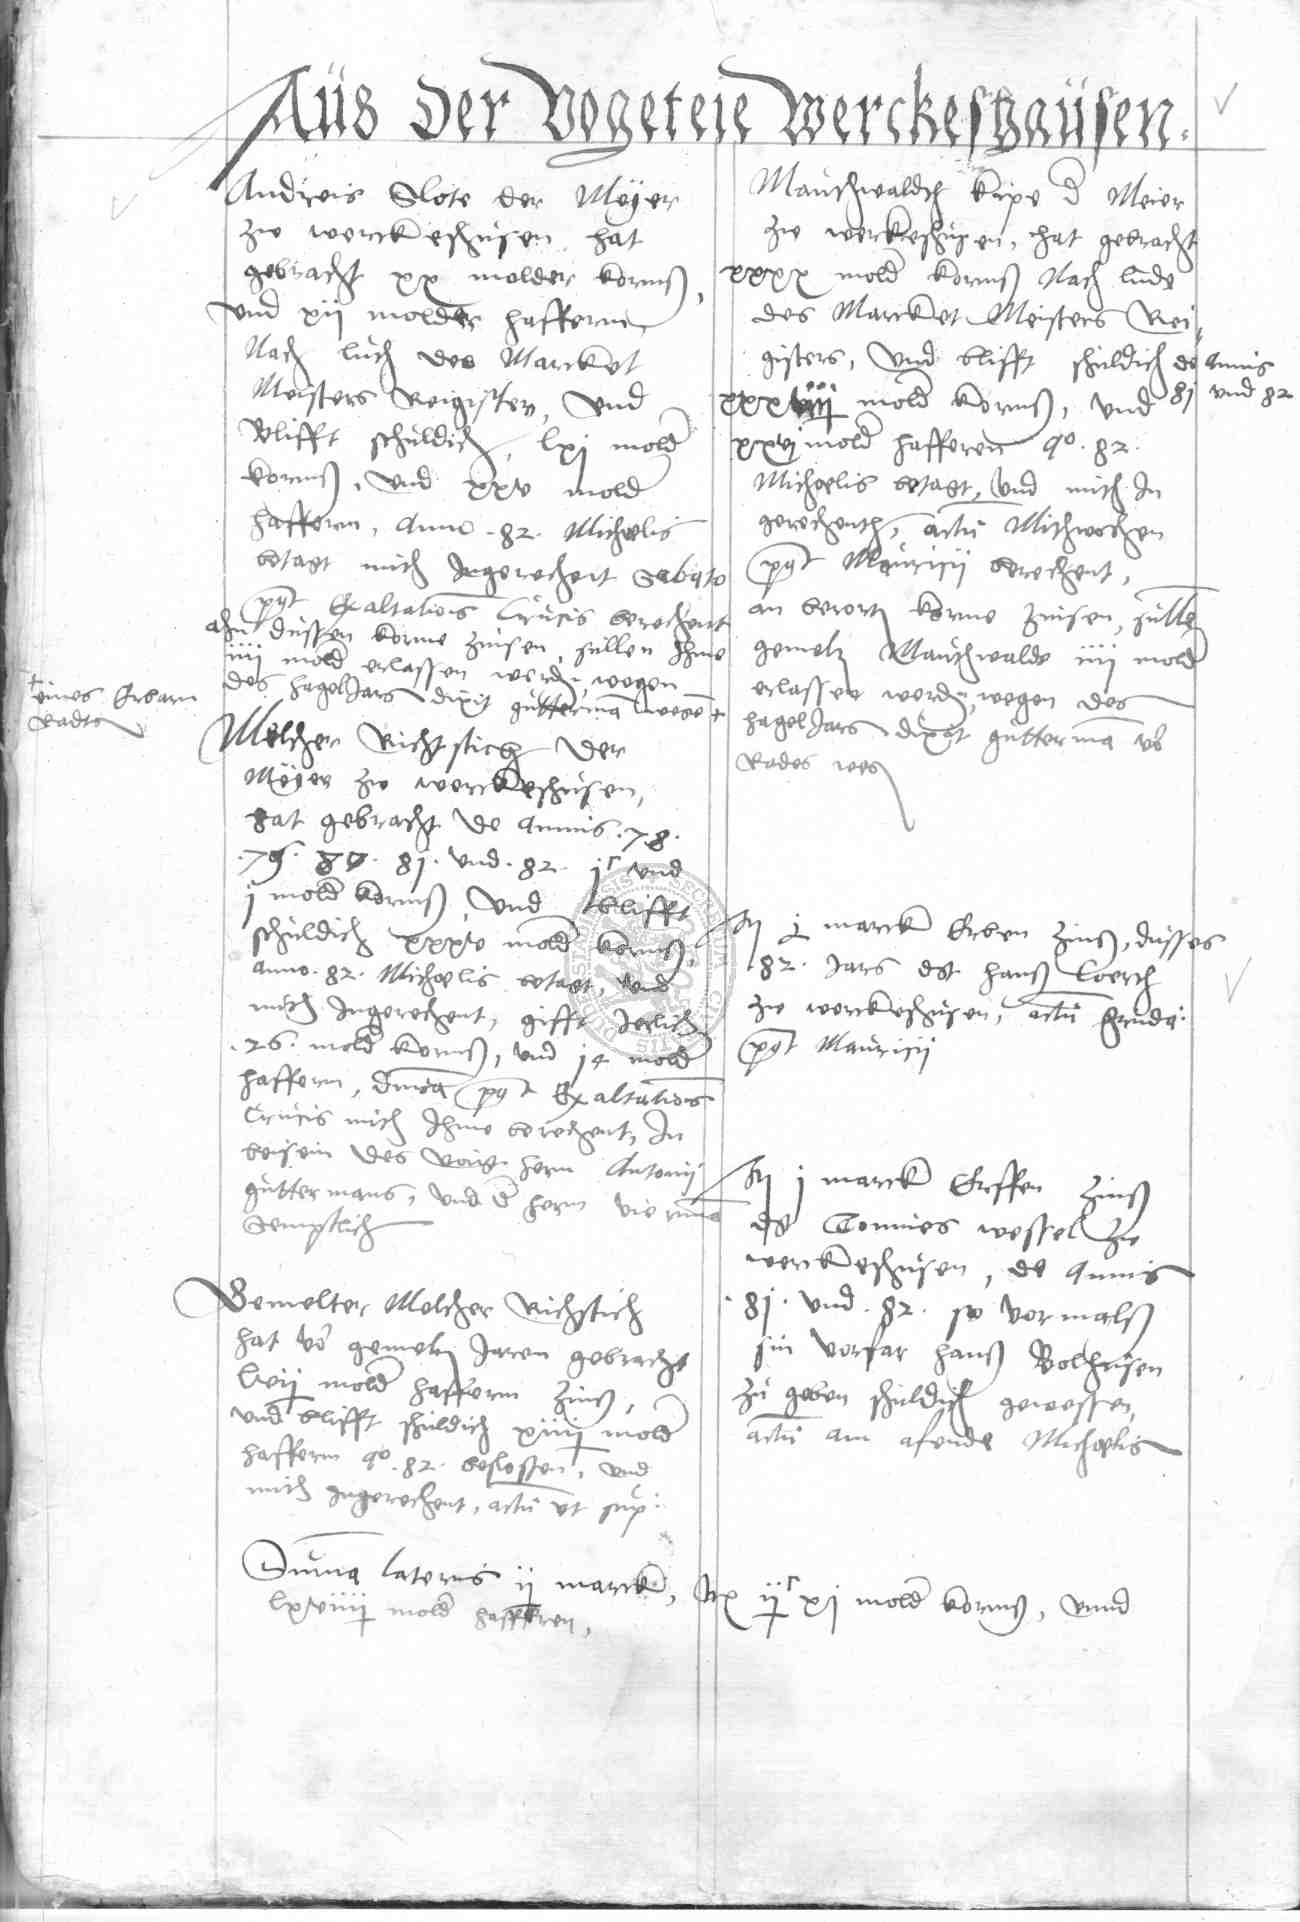 Aus der Vogeteie Werckeshausen.
Andreis Slote der Meyer
zw werckeshusen hat
gebracht xx molder kornß,
und xij molder haffernn
Nach luth des Marcket
Meisters Reigister, und
Blifft schuldich, lxj mold
kornß, und xxv mold
haffernn, Anno .82. Michaelis
betagt mith Ingerechent Sabato
post Exaltationis Crucis berechent
ahn dussen korne zinsen, sullen Ihme
iiij mold erlassen werdn, wegen
des hagelJars dixit gutterman wegē +
+ eines Erbarn
Radts
Melcher Richtstich der
Meyer zw werckeshusen,
hat gebracht de Annis .78.
.79. 80. 81. und .82. jc und
j mold kornß, und blifft
schuldich xxxv mold kornß,
anno .82. Michaelis betagt, und
mith Ingerechent, gifft Jerlich
.26. mold kornß, und 14 mold
haffernn, post Exaltationis
Crucis mith Ihme berechent, In
beisein des hern Antonij
guttermans, und d hern
Semptlich
Gemelter Melcher Richstich
hat vō gemeltn Jaren gebracht
mold haffernn zinß,
und blifft schuldich xiiij mold
haffernn ao .82. beslossen, und
mith Ingerechent, actū ut sup:
Mauthwaldth kipe d Meier
zw werckeshusen, hat gebracht
xxxx mold kornß Nach lude
des Marcket Meisters Rei
gisters, und blifft schuldich de Annis
81 und 82
xxxviij mold kornß, und
xxvj mold hafferen ao .82.
Michaelis betagt, und mith In
gerechenth, actū Mithwochen
post Mauricij berechent,
an berortn korne zinsen, sullen
gemeltn Mauthwalde iiij mold
erlassen werdn, wegen des
hagelJars dixit gutterman vō
Rades weg
marck Erben zinß, dusses
.82. Jars dt hanß Coerth
zw werckeshusen, actū
post Mauricij
j marck Erffen zinß
dt Tonnies wessel zw
werckeshusen, de Annis
.81. und .82. so vormalß
sin vorfar hanß Bolhusen
zu geben schuldich gewessen,
actū am afende Michaelis
Summa lateris ij marck, ijc xj mold kornß, unnd
lxviiij mold hafferen,